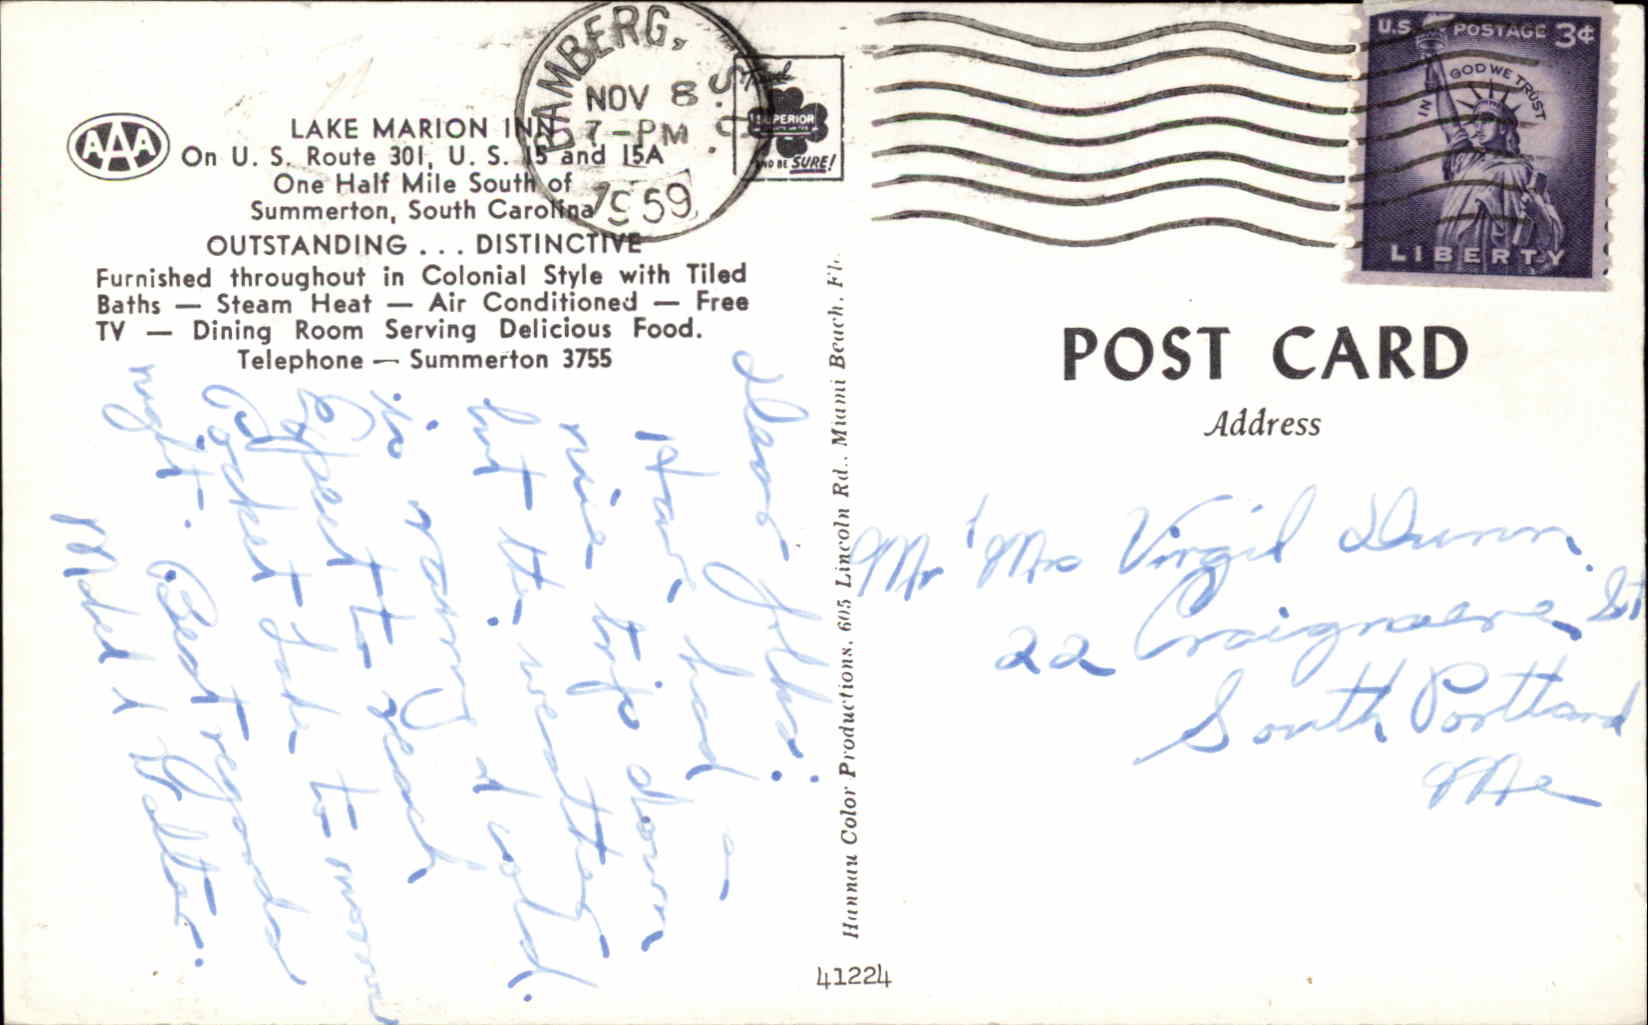 AAA
LAKE MARION INN
On U. S. Route 301, U. S. 15 and 15A
One Half Mile South of
Summerton, South Carolina
OUTSTANDING . . . DISTINCTIVE
Furnished throughout in Colonial Style with Tiled
Baths — Steam Heat — Air Conditioned — Free
TV — Dining Room Serving Delicious Food.
Telephone — Summerton 3755
BAMBERG, S.C.
NOV 8
7-PM
1959
SUPERIOR
AND BE SURE!
U.S. POSTAGE 3¢
IN GOD WE TRUST
LIBERTY
POST CARD
Address
Mr & Mrs Virgil Dunn.
22 Craigmere St
South Portland
Me
Hannau Color Productions, 605 Lincoln Rd., Miami Beach, Fla.
41224
Dear folks:
Have had a
nice trip down
but the weather
is rainy & cold.
Expect to reach
tomorrow
night. Best regards
Mabel & Walter.